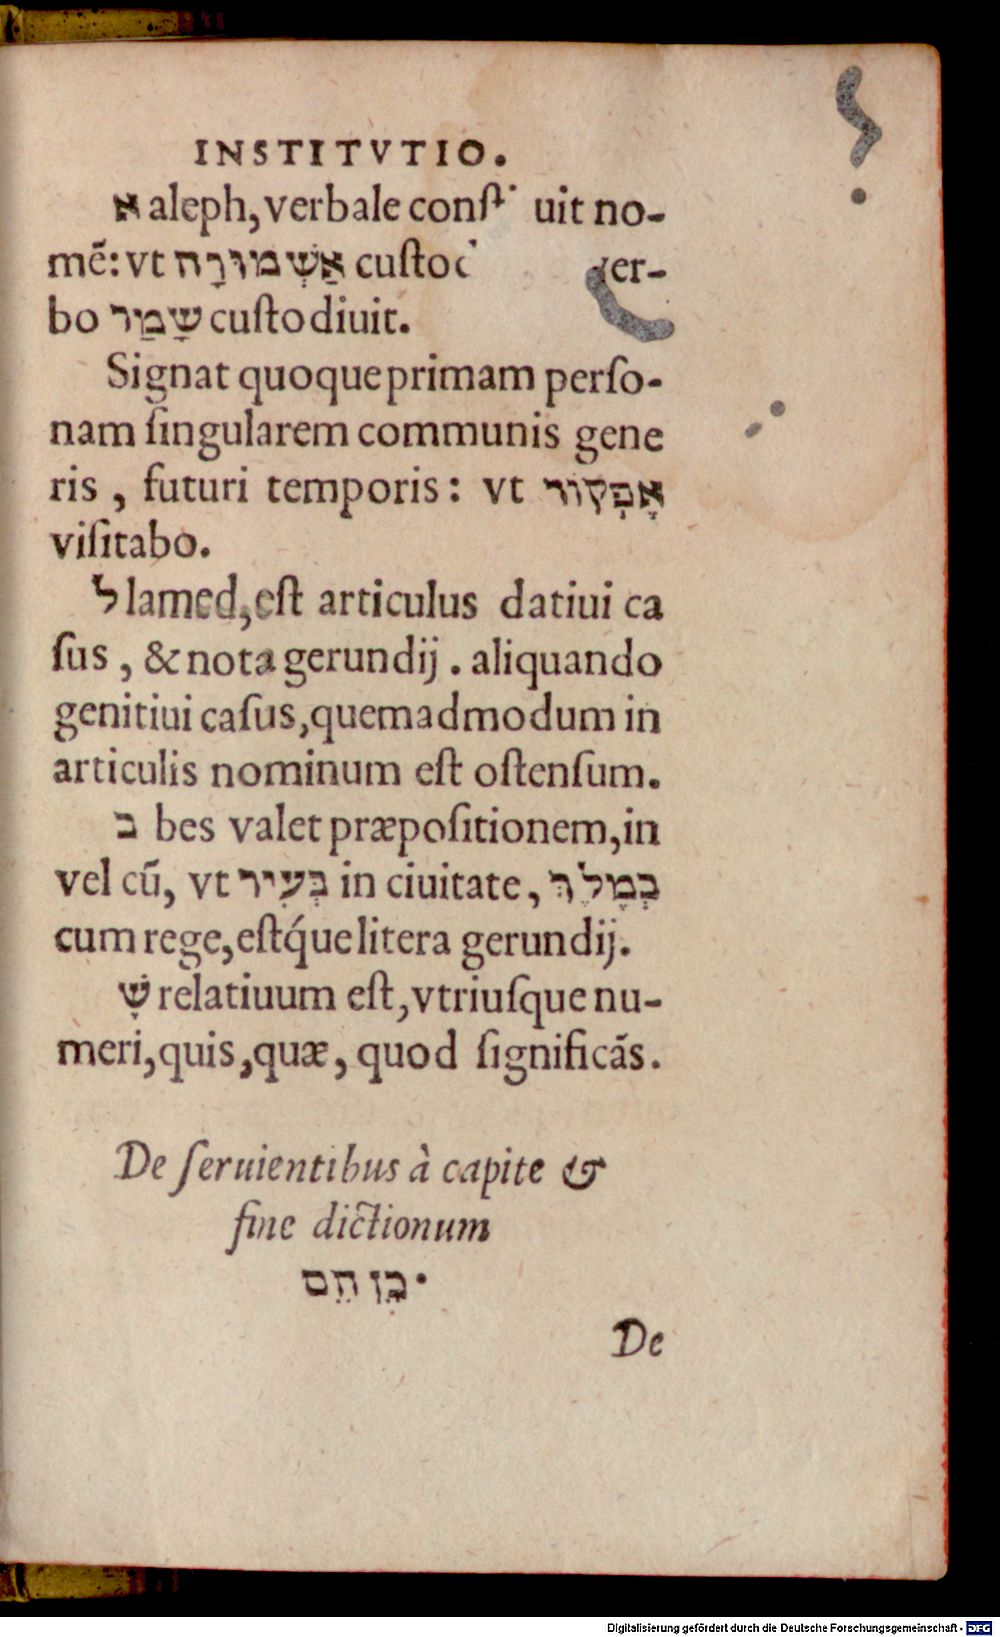 INSTITVTIO.
א aleph, verbale uit no-
mẽ: vt אַשְׁמוּרָה
bo שָׁמַר custodiuit.
Signat quoque primam perſo-
nam ſingularem communis gene
ris, futuri temporis: vt אֶפְקוֹד
viſitabo.
ל lamed, eſt articulus datiui ca
ſus, & nota gerundij. aliquando
genitiui caſus, quemadmodum in
articulis nominum eſt oſtenſum.
ב bes valet præpoſitionem, in
vel cũ, vt בְּעִיר in ciuitate, בְּמֶלֶךְ
cum rege, eſtq́ue litera gerundij.
שֶׁ relatiuum eſt, vtriuſque nu-
meri, quis, quæ, quod ſignificãs.
De ſeruientibus à capite &
fine dictionum
כֵּן הֵם.
De
Digitalisierung gefördert durch die Deutsche Forschungsgemeinschaft - DFG